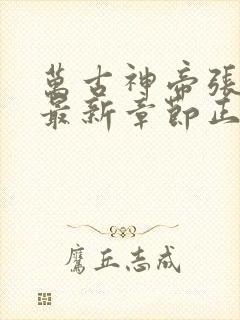 萬古神帝張
最新章節正
鷹丘志成